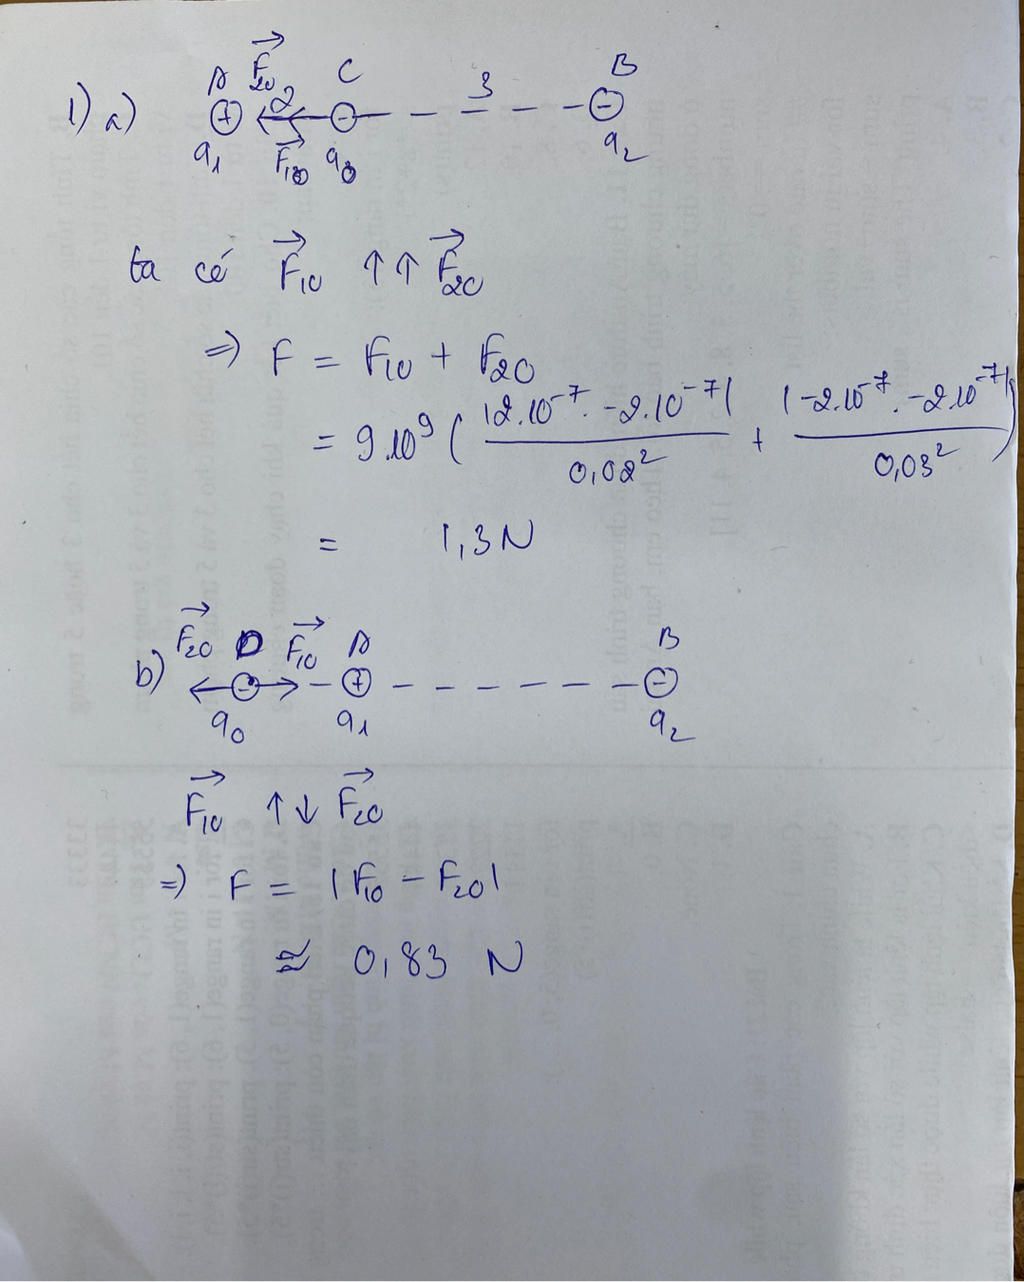 1) a) A F₂₀ C 3 B
+ 2 - -
q₁ F₁₀ q₀ q₂
ta có F₁₀ ↑↑ F₂₀
=> F = F₁₀ + F₂₀
= 9.10⁹ ( |2.10⁻⁷ . -2.10⁻⁷| / 0,02² + |-2.10⁻⁷ . -2.10⁻⁷| / 0,03² )
= 1,3 N
b) F₂₀ D F₁₀ A B
- + -
q₀ q₁ q₂
F₁₀ ↑↓ F₂₀
=> F = |F₁₀ - F₂₀|
≈ 0,83 N